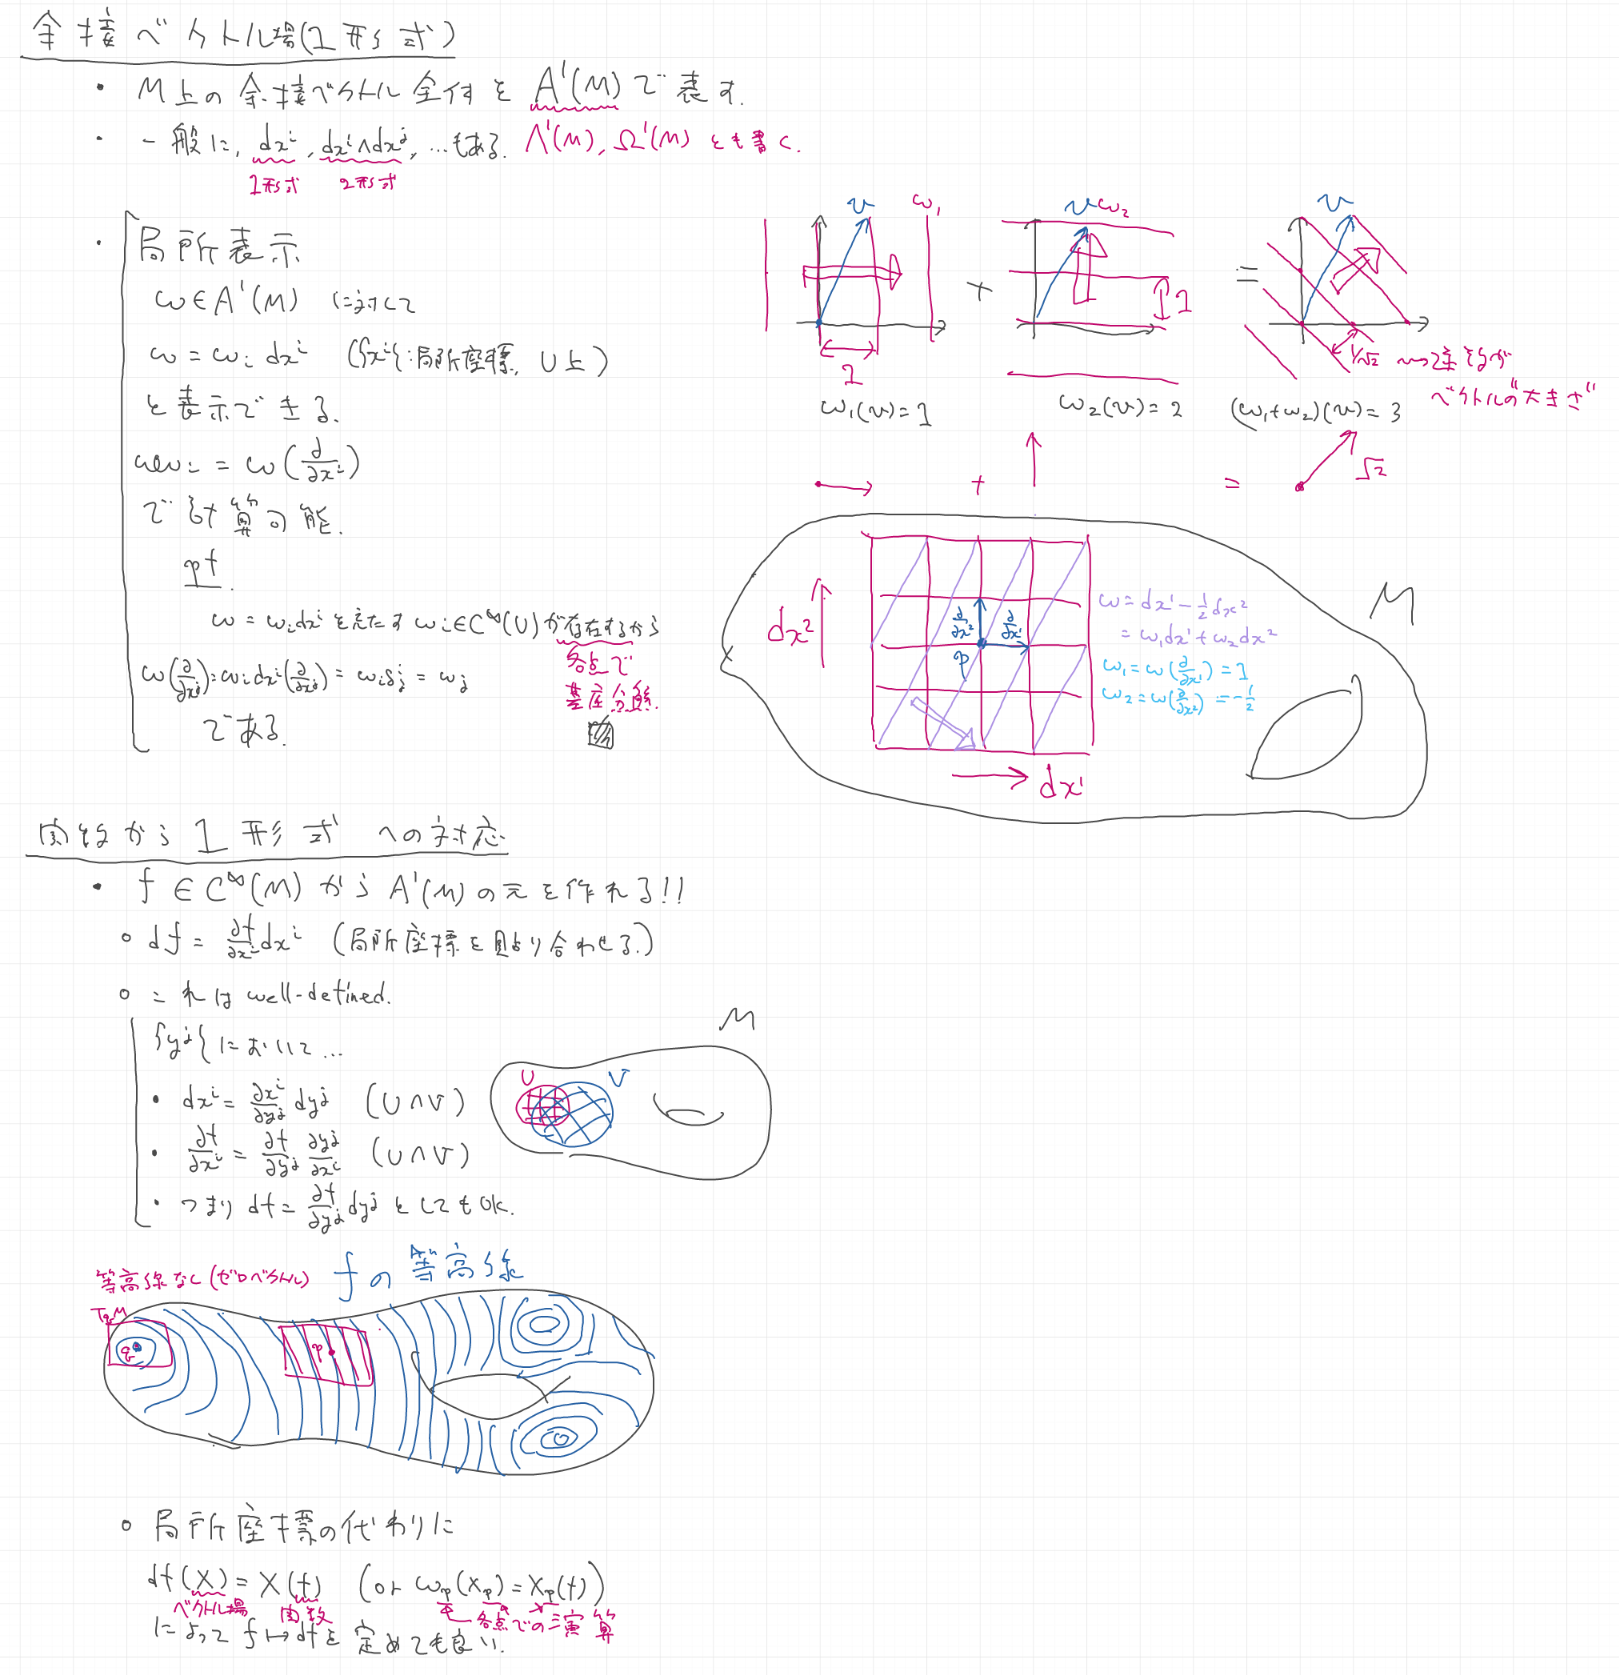 余接ベクトル場(1形式)
・M上の余接ベクトル全体を A¹(M) で表す.
・一般に, dxⁱ, dxⁱ∧dxʲ, …もある. Λ¹(M), Ω¹(M) とも書く.
1形式 2形式
・局所表示
ω∈A¹(M) に対して
ω = ωᵢ dxⁱ ({xⁱ}:局所座標, U上)
と表示できる.
ωᵢ = ω(∂/∂xⁱ)
で計算可能.
pf.
ω = ωᵢdxⁱ を満たす ωᵢ∈C^∞(U) が存在するから
各点で
基底分解.
ω(∂/∂xʲ) = ωᵢdxⁱ(∂/∂xʲ) = ωᵢδⁱⱼ = ωⱼ
である.
v ω₁
+
v ω₂
=
v
1
1
1/√2 〜〜逆数が
ベクトルの"大きさ"
ω₁(v)=1
ω₂(v)=2
(ω₁+ω₂)(v)=3
+
=
√2
M
dx²
∂/∂x² ∂/∂x¹
p
dx¹
ω = dx¹ - 1/2 dx²
= ω₁dx¹ + ω₂dx²
ω₁ = ω(∂/∂x¹) = 1
ω₂ = ω(∂/∂x²) = -1/2
関数から1形式への対応
・f ∈ C^∞(M) から A¹(M) の元を作れる!!
○ df = ∂f/∂xⁱ dxⁱ (局所座標を貼り合わせる.)
○ これは well-defined.
{yʲ}において…
・dxⁱ = ∂xⁱ/∂yʲ dyʲ (U∩V)
・∂f/∂xⁱ = ∂f/∂yʲ ∂yʲ/∂xⁱ (U∩V)
・つまり df = ∂f/∂yʲ dyʲ としてもOK.
M
U V
等高線なし(ゼロベクトル)
fの等高線
TqM
q
p
○ 局所座標の代わりに
df(X) = X(f) (or ωp(Xp) = Xp(f))
ベクトル場 関数 各点での演算
によって f↦df を定めても良い.